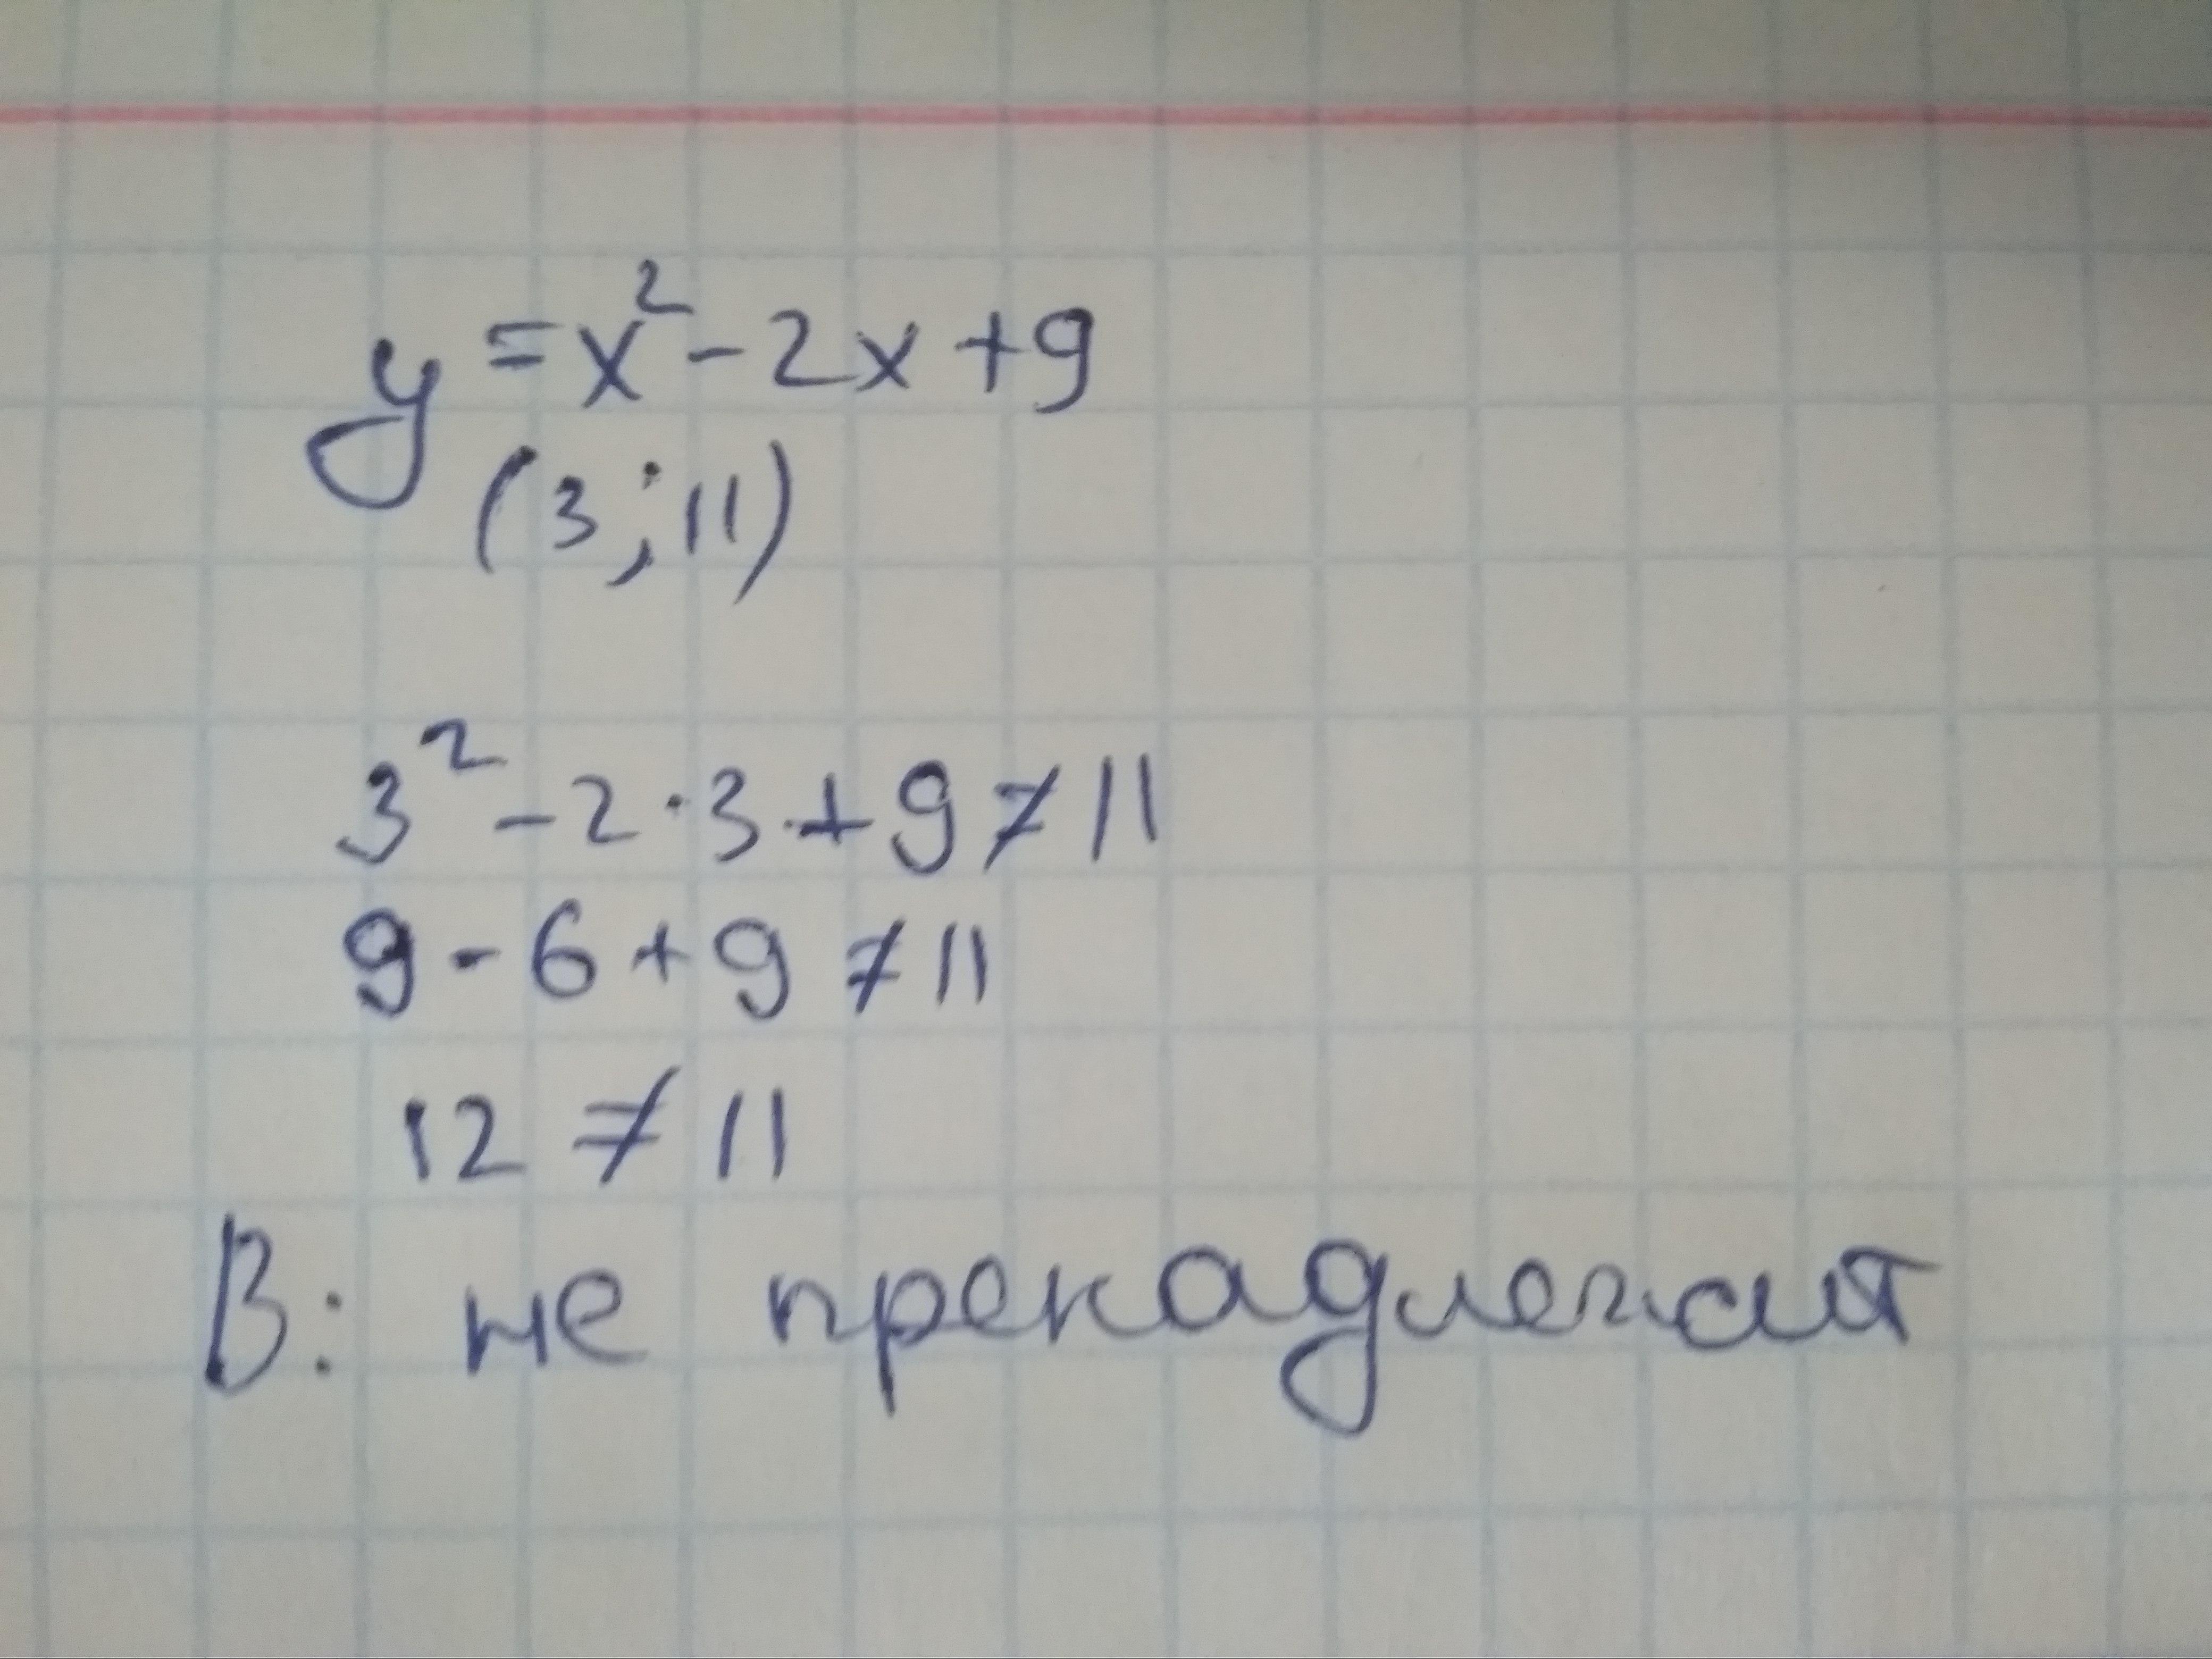 y = x² - 2x + 9
(3; 11)
3² - 2 · 3 + 9 ≠ 11
9 - 6 + 9 ≠ 11
12 ≠ 11
В: не пренадлежит